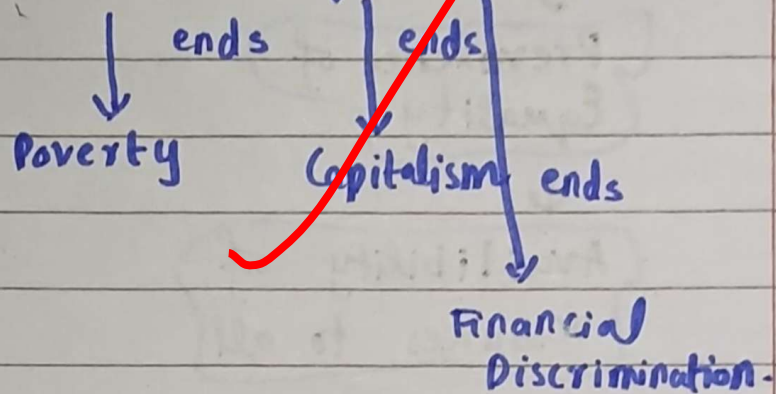 ends ends
Poverty
Capitalism ends
Financial
Discrimination.